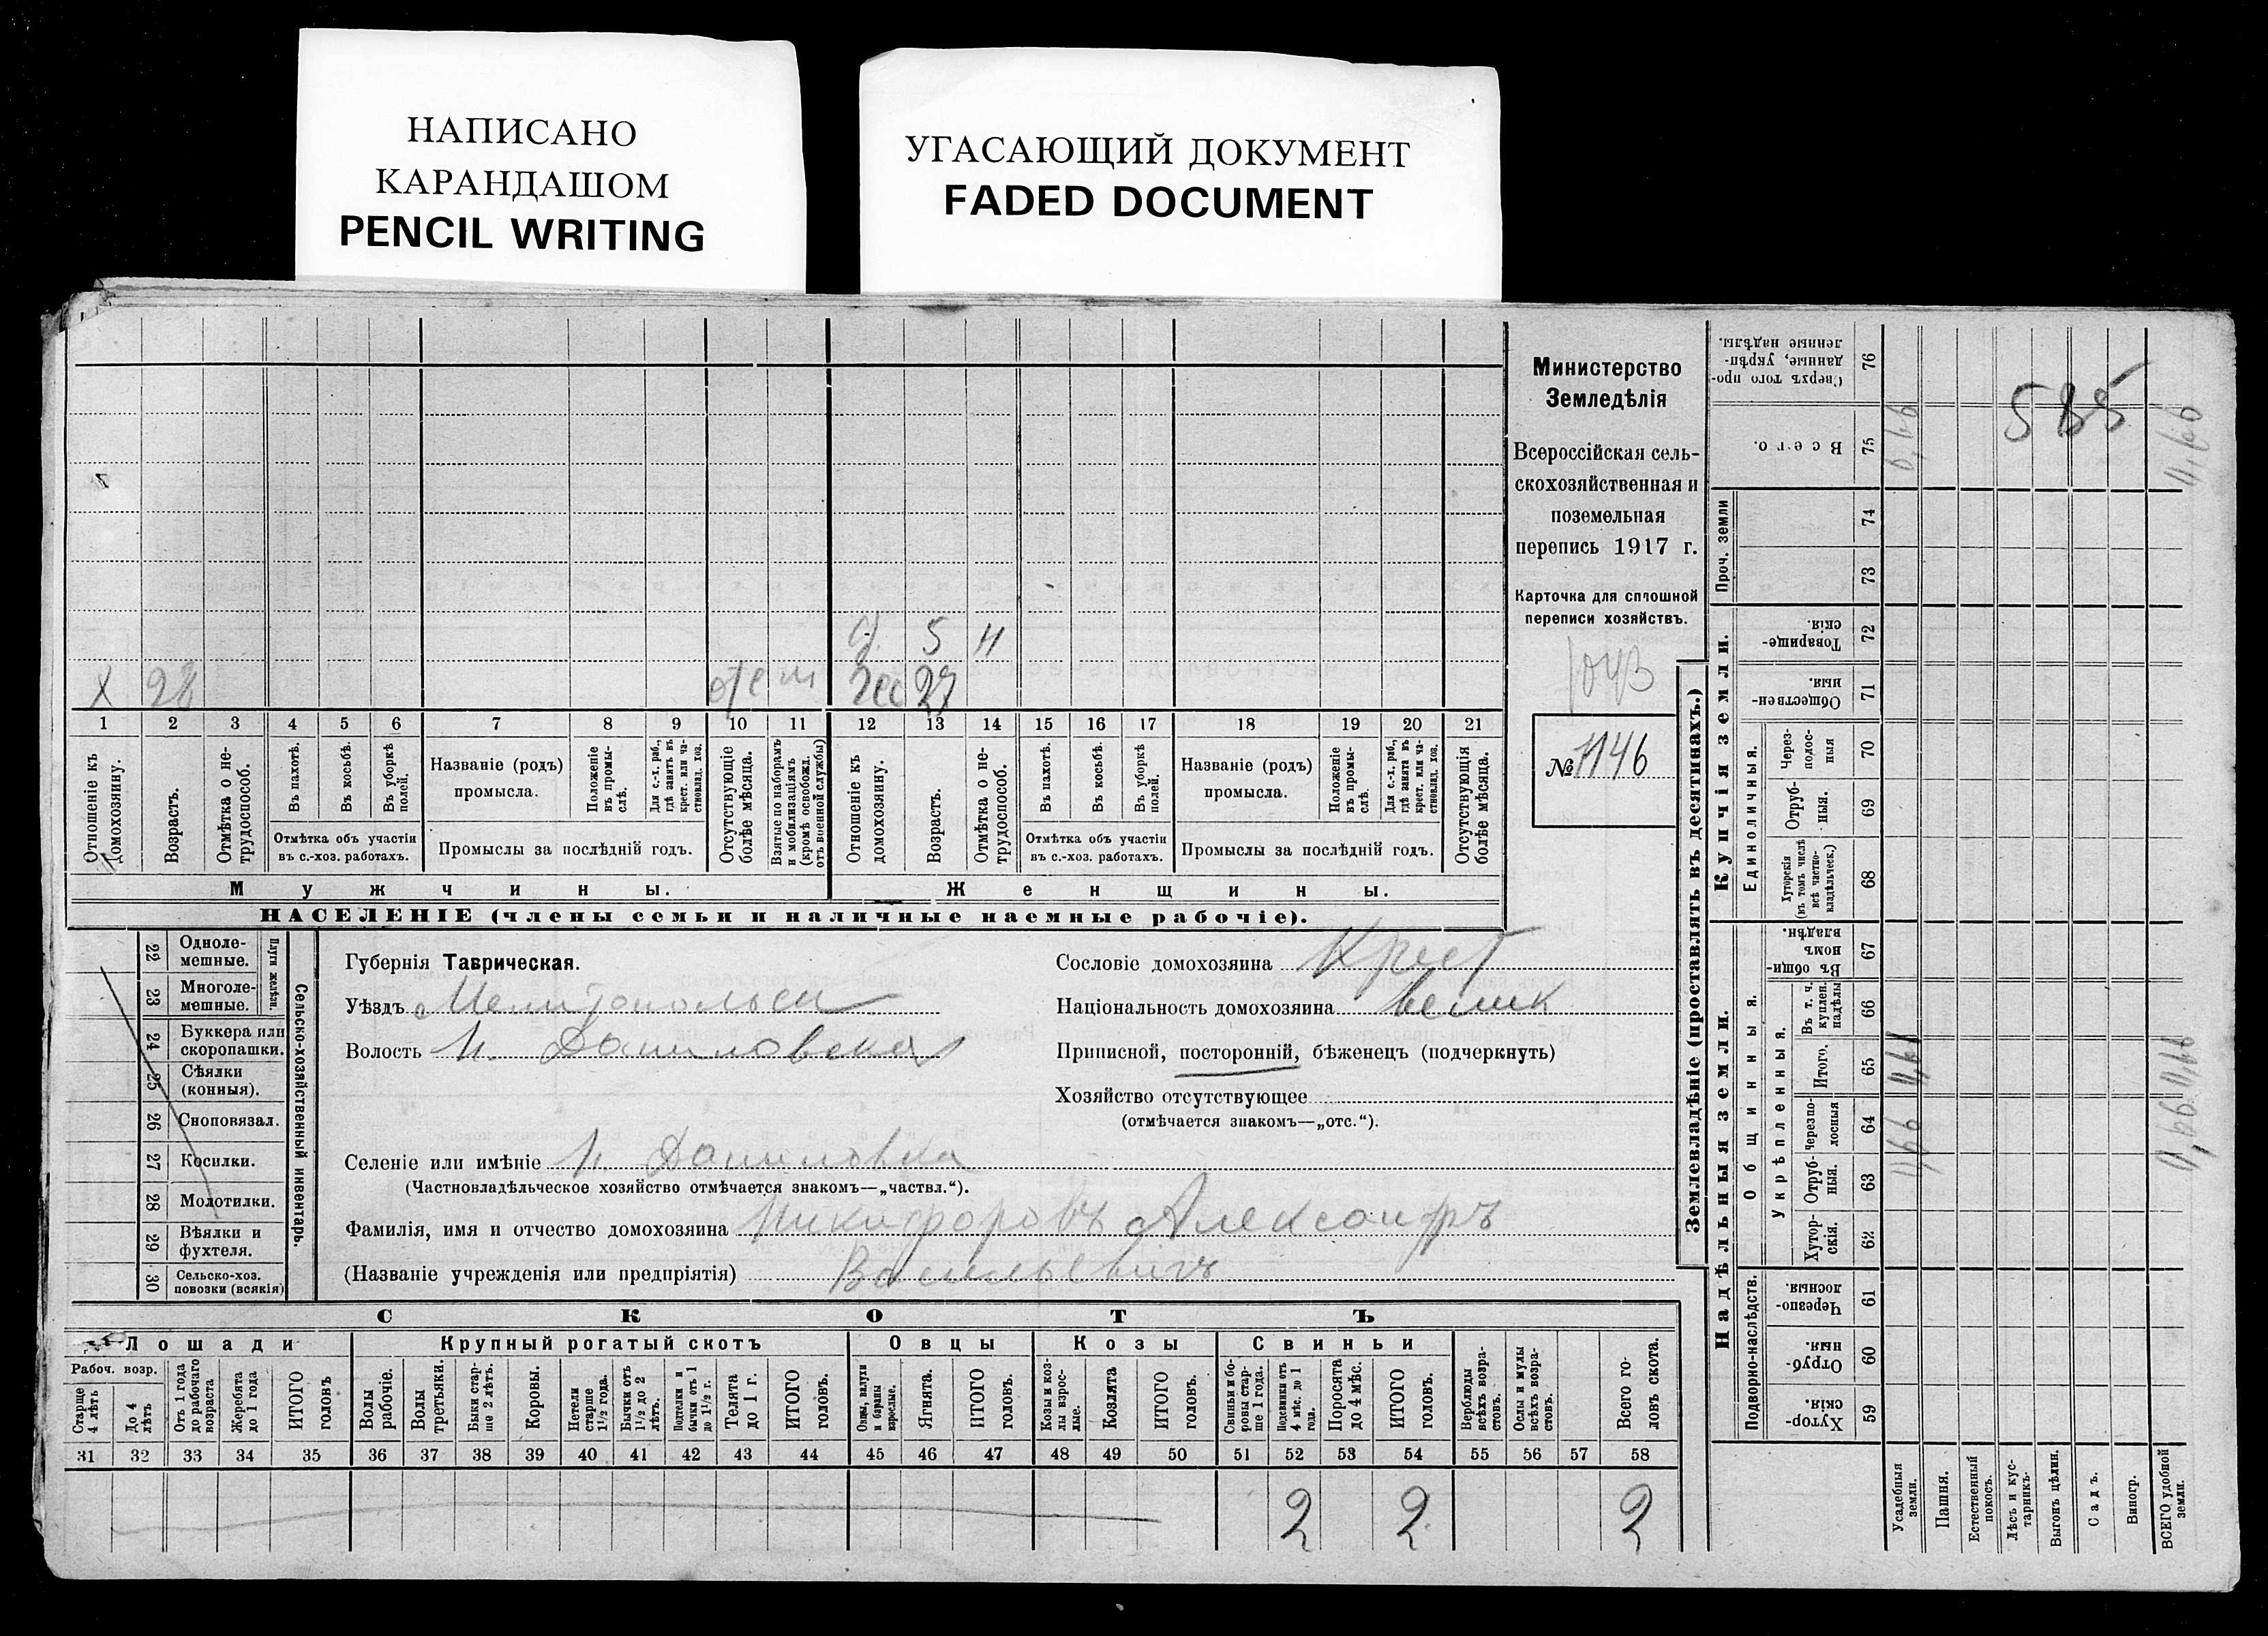 НАПИСАНО
КАРАНДАШОМ
PENCIL WRITING
УГАСАЮЩИЙ ДОКУМЕНТ
FADED DOCUMENT
Министерство
Земледѣлія
Всероссійская сель-
скохозяйственная и
поземельная
перепись 1917 г.
Карточка для сплошной
переписи хозяйствъ.
1043
№ 1146
д. 5 н
Х 28 отс м 27
1 2 3 4 5 6 7 8 9 10 11 12 13 14 15 16 17 18 19 20 21
Отношеніе къ домохозяину.
Возрастъ.
Отмѣтка о не-трудоспособ.
Въ пахотѣ.
Въ косьбѣ.
Въ уборкѣ полей.
Отмѣтка объ участіи
въ с.-хоз. работахъ.
Названіе (родъ)
промысла.
Положеніе въ промы-слѣ.
Для с.-х. раб., гдѣ занятъ въ крест. или ча-стновлад. хоз.
Промыслы за послѣдній годъ.
Отсутствующіе болѣе мѣсяца.
Взятые по наборамъ и мобилизаціямъ (кромѣ освобожд. отъ военной службы)
Отношеніе къ домохозяину.
Возрастъ.
Отмѣтка о не-трудоспособ.
Въ пахотѣ.
Въ косьбѣ.
Въ уборкѣ полей.
Отмѣтка объ участіи
въ с.-хоз. работахъ.
Названіе (родъ)
промысла.
Положеніе въ промы-слѣ.
Для с.-х. раб., гдѣ занята въ крест. или ча-стновлад. хоз.
Промыслы за послѣдній годъ.
Отсутствующія болѣе мѣсяца.
Мужчины.
Женщины.
НАСЕЛЕНІЕ (члены семьи и наличные наемные рабочіе).
Сельско-хозяйственный инвентарь.
Плуги желѣзн.
22 Одноле-мешные.
23 Многоле-мешные.
24 Буккера или скоропашки.
25 Сѣялки (конныя).
26 Сноповязал.
27 Косилки.
28 Молотилки.
29 Вѣялки и фухтеля.
30 Сельско-хоз. повозки (всякія)
Губернія Таврическая.
Уѣздъ Мелитопольск
Волость Н. Даниловская
Селеніе или имѣніе Н. Даниловка
(Частновладѣльческое хозяйство отмѣчается знакомъ—„частвл.“).
Фамилія, имя и отчество домохозяина Никифоровъ Александръ
(Названіе учрежденія или предпріятія) Васильевичъ
Сословіе домохозяина Крест
Національность домохозяина велик
Приписной, посторонній, бѣженецъ (подчеркнуть)
Хозяйство отсутствующее
(отмѣчается знакомъ—„отс.“).
СКОТЪ
Лошади
Рабоч. возр.
Старше 4 лѣтъ
До 4 лѣтъ
Отъ 1 года до рабочаго возраста
Жеребята до 1 года
ИТОГО головъ
Крупный рогатый скотъ
Волы рабочіе.
Волы третьяки.
Быки стар-ше 2 лѣтъ.
Коровы.
Нетели старше 1½ года.
Бычки отъ 1½ до 2 лѣтъ.
Подтелки и бычки отъ 1 до 1½ г.
Телята до 1 г.
ИТОГО головъ.
Овцы
Овцы, валухи и бараны взрослые.
Ягнята.
ИТОГО головъ.
Козы
Козы и коз-лы взрос-лые.
Козлята
ИТОГО головъ.
Свиньи
Свиньи и бо-ровы стар-ше 1 года.
Подсвинки отъ 4 мѣс. до 1 года.
Поросята до 4 мѣс.
ИТОГО головъ.
Верблюды всѣхъ возра-стовъ.
Ослы и мулы всѣхъ возра-стовъ.
Всего го-ловъ скота.
31 32 33 34 35 36 37 38 39 40 41 42 43 44 45 46 47 48 49 50 51 52 53 54 55 56 57 58
2 2 2
Землевладѣніе (проставлять въ десятинахъ.)
Надѣльныя земли.
Купчія земли.
Проч. земли
Подворно-наслѣдств.
Общинныя.
Укрѣпленныя.
Единоличныя.
Хутор-скія. 59
Отруб-ныя. 60
Черезпо-лосныя. 61
Хутор-скія. 62
Отруб-ныя. 63
Черезпо-лосныя 64
Итого. 65
Въ т. ч. куплен. надѣлы 66
Въ общин-номъ владѣн. 67
Хуторскія (въ томъ числѣ всѣ частно-владѣльческ.) 68
Отруб-ныя. 69
Через-полос-ныя 70
Обществен-ныя. 71
Товарище-скія. 72
73
74
Всего. 75
Сверхъ того про-данные, укрѣп-ленные надѣлы. 76
585
Усадебныя земли.
Пашня.
Естественный покосъ.
Лѣсъ и кус-тарникъ.
Выгонъ цѣлин.
Садъ.
Виногр.
ВСЕГО удобной земли.